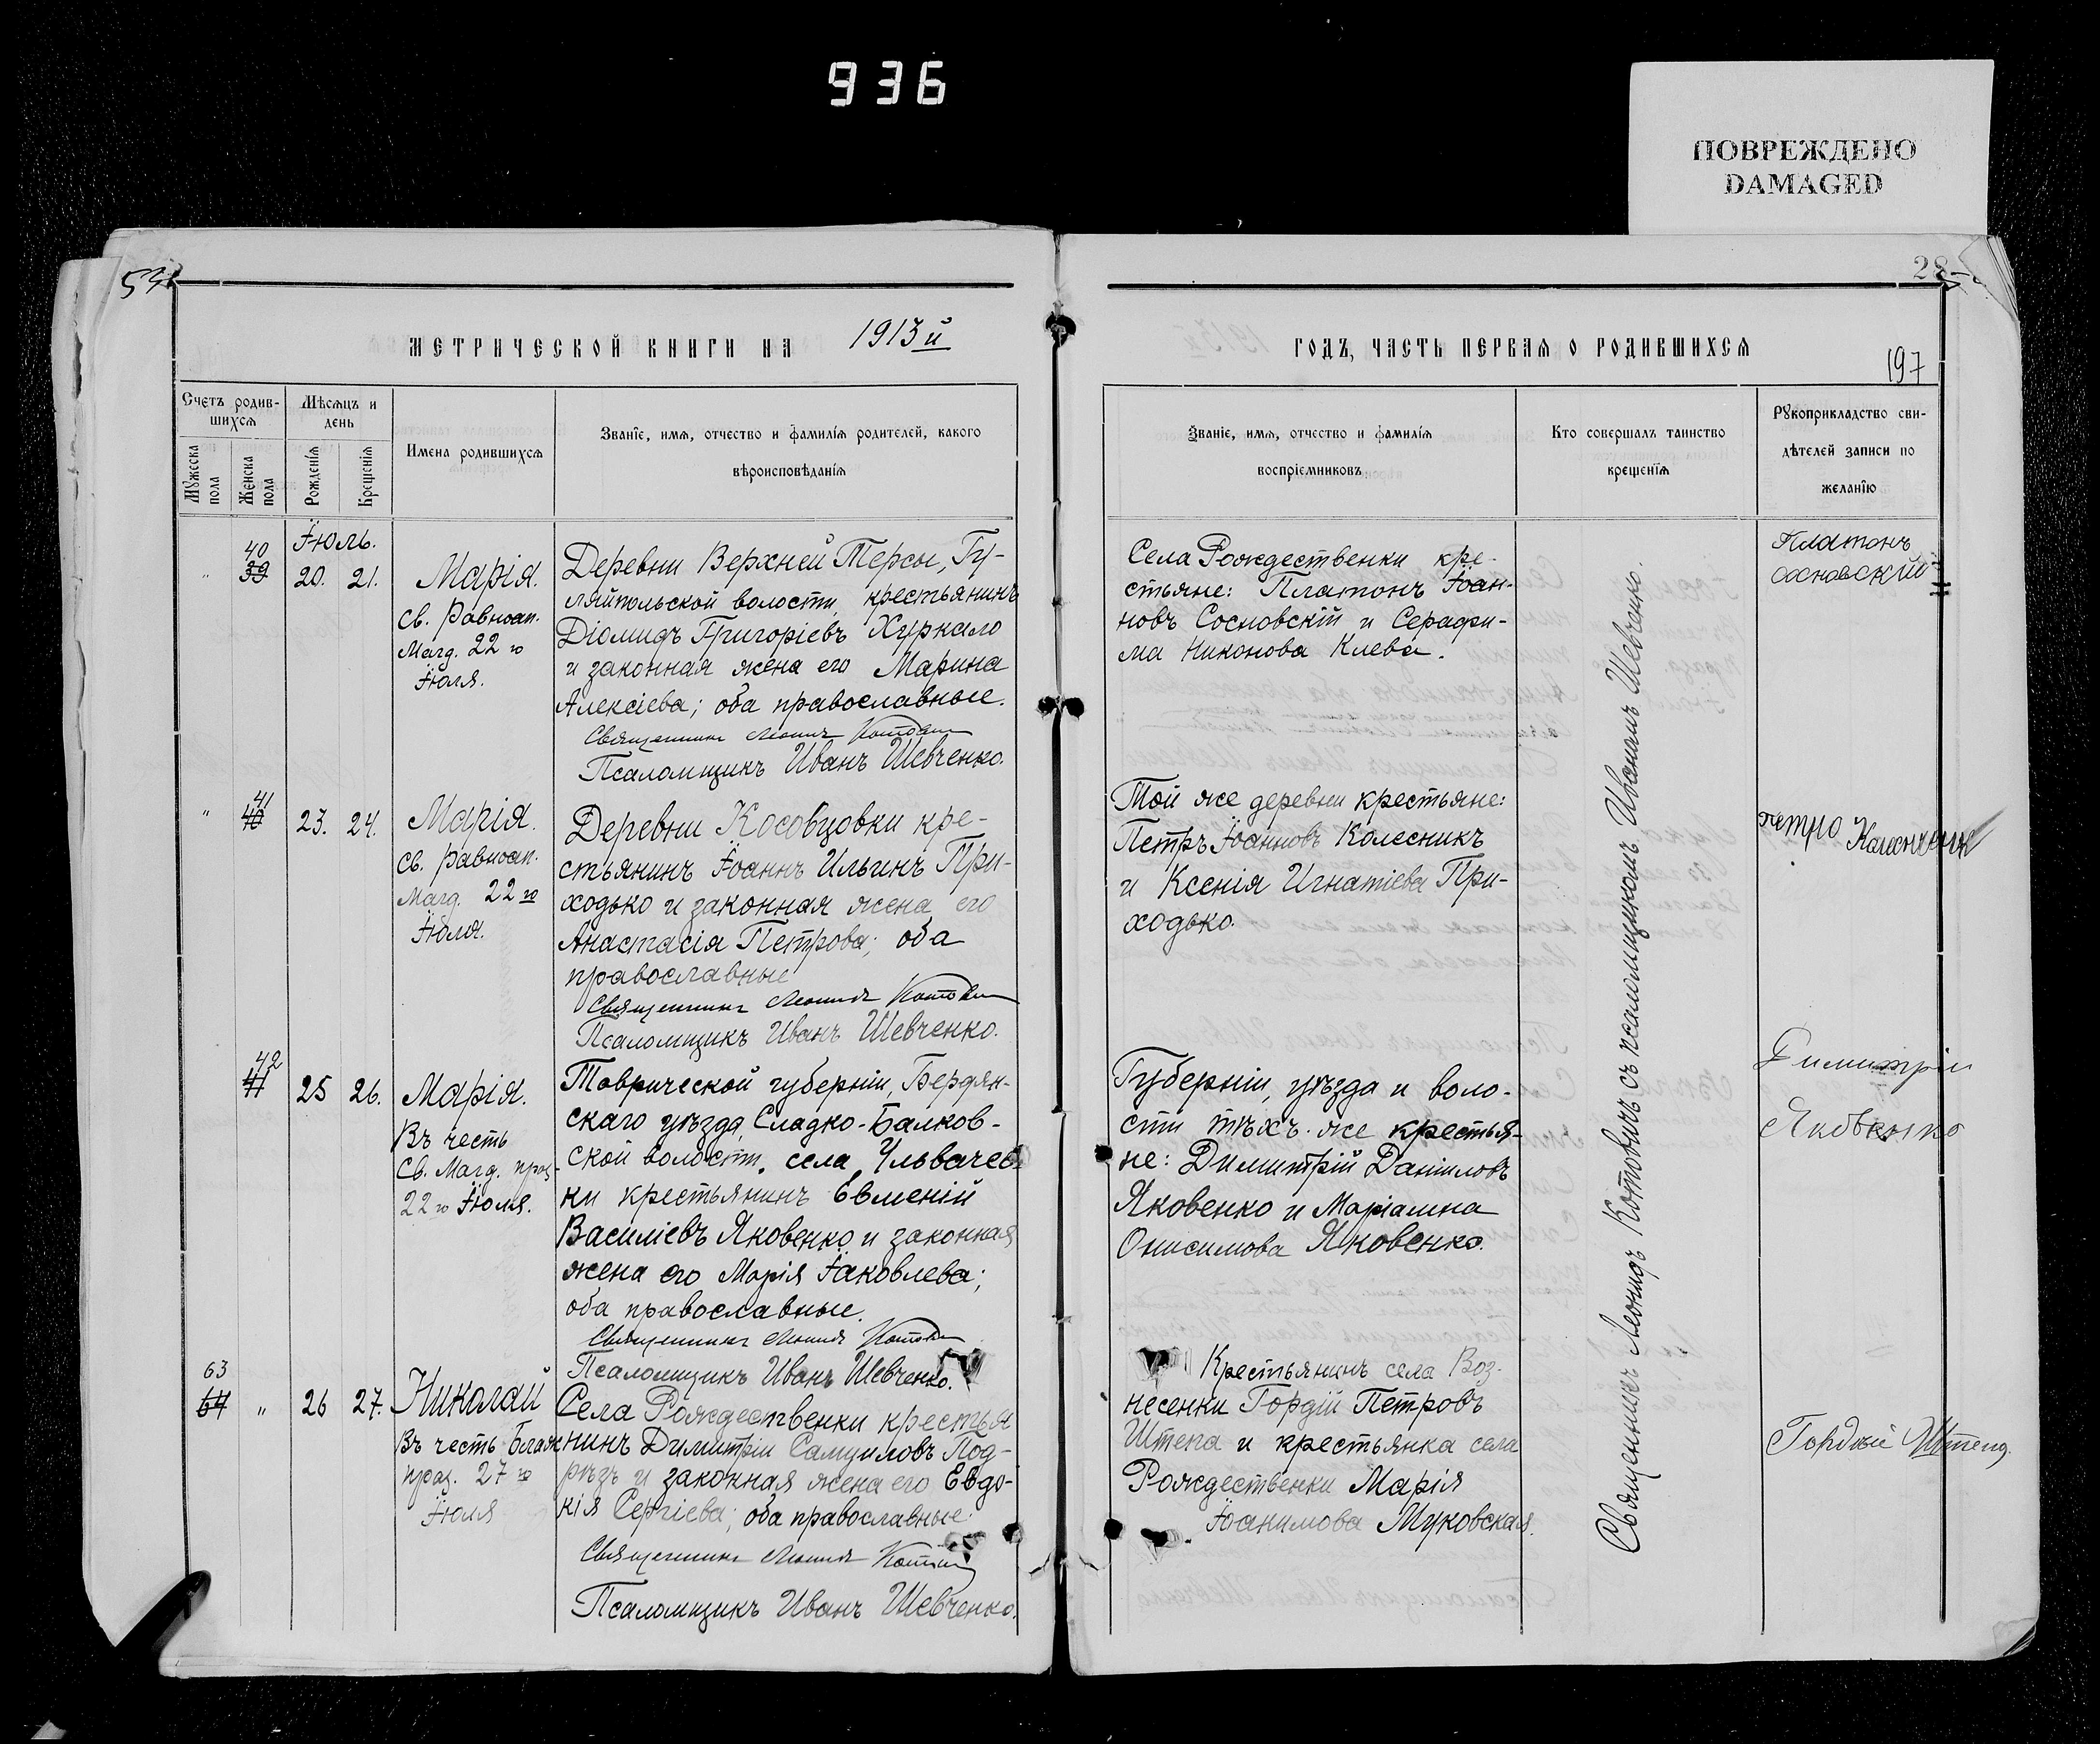 936
ПОВРЕЖДЕНО
DAMAGED
28
МЕТРИЧЕСКОЙ КНИГИ НА 1913й
ГОДЪ, ЧАСТЬ ПЕРВАЯ О РОДИВШИХСЯ
197
Счетъ родив-
шихся
Мужеска
пола
Женска
пола
Мѣсяцъ и
день
Рожденія
Крещенія
Имена родившихся
Званіе, имя, отчество и фамилія родителей, какого
вѣроисповѣданія
Званіе, имя, отчество и фамилія
воспріемниковъ
Кто совершалъ таинство
крещенія
Рукоприкладство сви-
дѣтелей записи по
желанію
Іюль.
40
39
20. 21.
Марія.
Св. Равноап.
Магд. 22 го
Іюля.
Деревни Верхней Терсы, Гу-
ляйпольской волости, крестьянинъ
Діомидъ Григоріевъ Хуркало
и законная жена его Марина
Алексіева; оба православные.
Священникъ Леонидъ Котовичъ
Псаломщикъ Иванъ Шевченко.
Села Рождественки кре-
стьяне: Платонъ Іоан-
новъ Сосновскій и Серафи-
ма Никонова Клева.
Платонъ
Сосновский
41
40
23. 24.
Марія.
Св. Равноап.
Магд. 22 го
Іюля.
Деревни Косовцовки кре-
стьянинъ Іоаннъ Ильинъ При-
ходько и законная жена его
Анастасія Петрова; оба
православные
Священникъ Леонидъ Котовичъ
Псаломщикъ Иванъ Шевченко.
Той же деревни крестьяне:
Петръ Іоанновъ Колесникъ
и Ксенія Игнатіева При-
ходько.
Петро
42
41
25 26.
Марія.
Въ честь
Св. Магд. праз.
22 го Іюля.
Таврической губерніи, Бердян-
скаго уѣзда, Сладко-Балков-
ской волости, села
ки крестьянинъ Евменій
Василіевъ Яковенко и законная
жена его Марія Іаковлева;
оба православные.
Священникъ Леонидъ Котовичъ
Псаломщикъ Иванъ Шевченко.
Губерніи, уѣзда и воло-
сти тѣхъ же крестья-
не: Димитрій Даніиловъ
Яковенко и Маріамна
Онисимова Яковенко.
Димитрій
Яковенко
63
64 „ 26 27.
Николай
Въ честь Блаж
праз. 27 го
Іюля
Села Рождественки крестья
нинъ Димитрій Самуиловъ Под-
рѣзъ и законная жена его Евдо-
кія Сергіева; оба православные.
Священникъ Леонидъ Котовичъ
Псаломщикъ Иванъ Шевченко.
Крестьянинъ села Воз-
несенки Гордій Петровъ
Штепа и крестьянка села
Рождественки Марія
Іоакимова Муковская.
Гордий Штепа
Священникъ Леонидъ Котовичъ съ псаломщикомъ Иваномъ Шевченко.